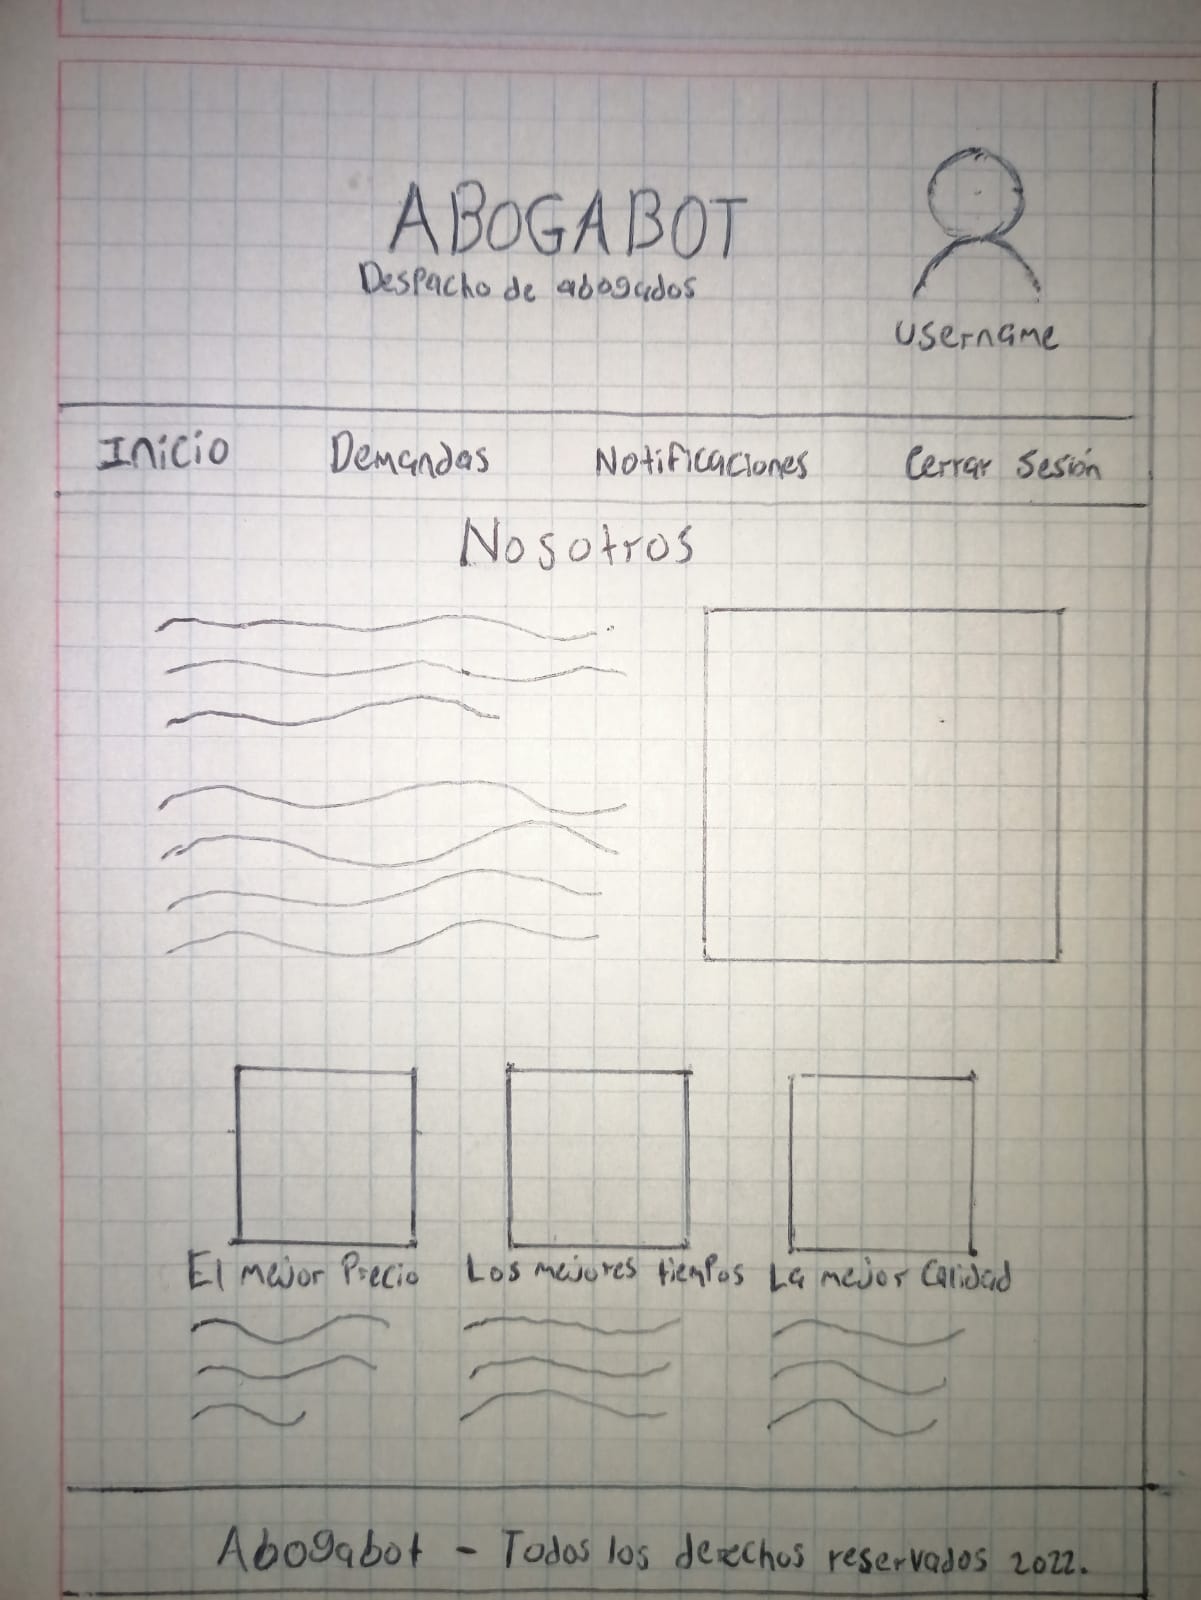 ABOGABOT
Despacho de abogados
username
Inicio Demandas Notificaciones Cerrar Sesión
Nosotros
El mejor Precio Los mejores tiempos La mejor Calidad
Abogabot - Todos los derechos reservados 2022.